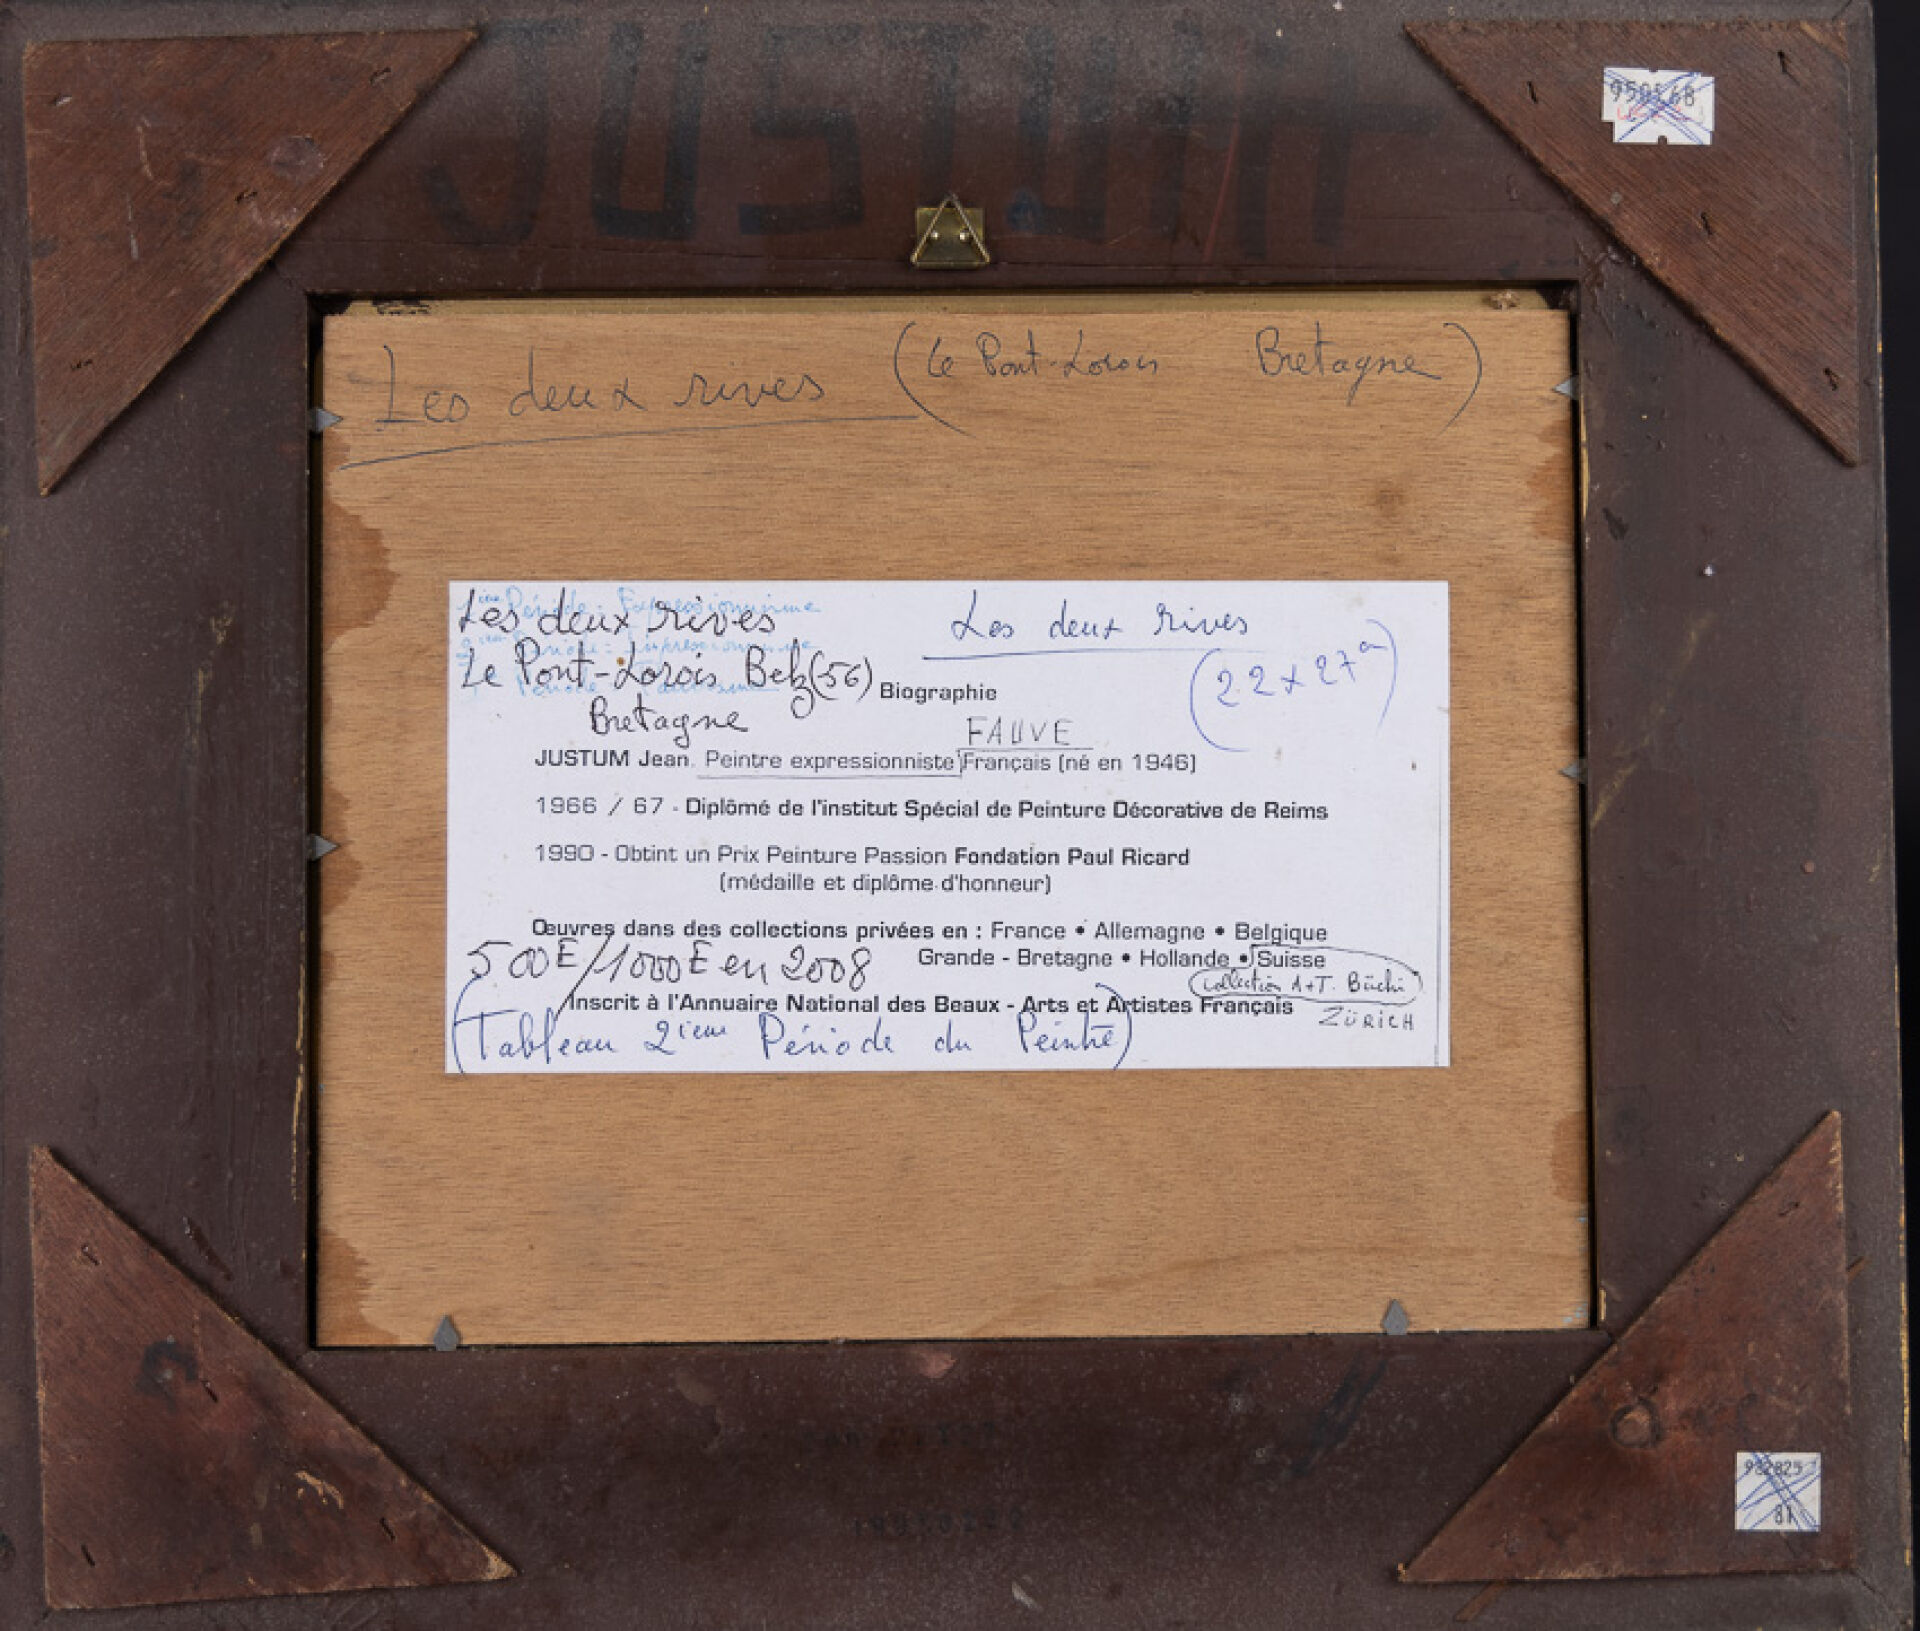 JUSTUM
959568
Les deux rives (Le Pont-Lorois Bretagne)
1ière Période: Expressionnisme
Les deux rives
Les deux rives
2ième Période: Impressionnisme
Le Pont-Lorois Belz (56)
(22 x 27 cm)
Période
Biographie
Bretagne
FAUVE
JUSTUM Jean. Peintre expressionniste Français (né en 1946)
1966 / 67 - Diplômé de l'institut Spécial de Peinture Décorative de Reims
1990 - Obtint un Prix Peinture Passion Fondation Paul Ricard
(médaille et diplôme d'honneur)
Œuvres dans des collections privées en : France • Allemagne • Belgique
500E/1000E en 2008
Grande - Bretagne • Hollande • Suisse
Collection A+T. Büchi
Inscrit à l'Annuaire National des Beaux - Arts et Artistes Français
ZÜRICH
(Tableau 2ieme Période du Peintre)
932825
81